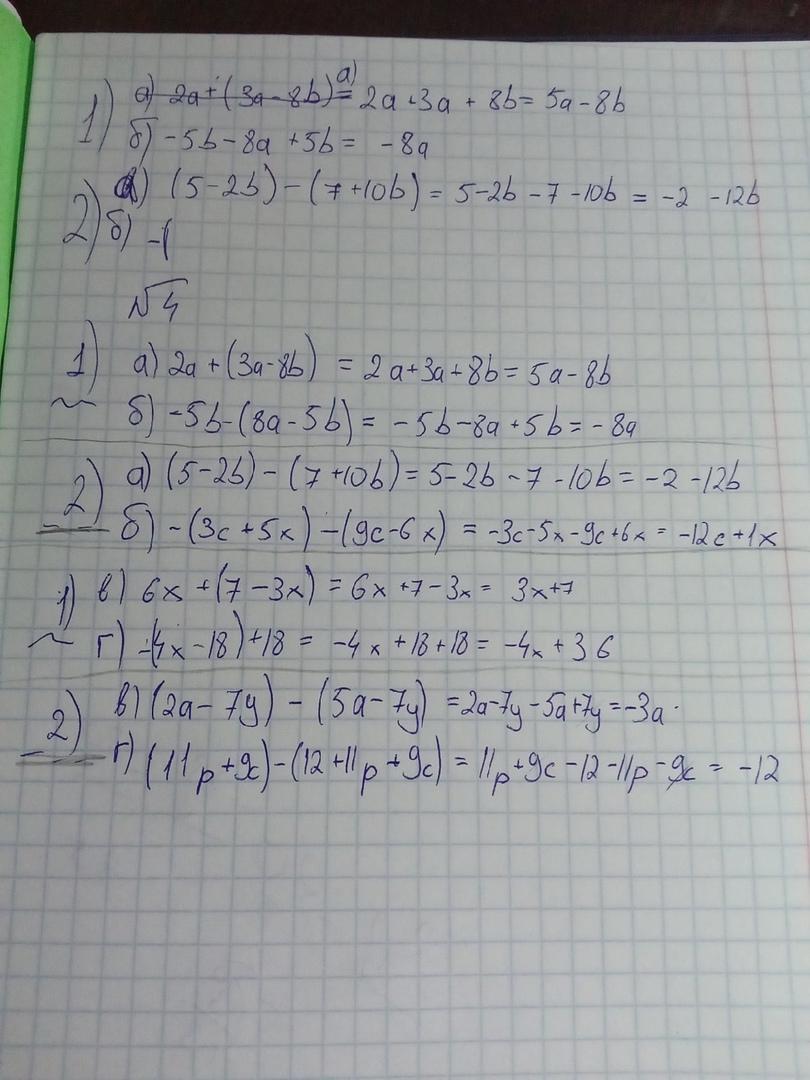 1) а) 2a+(3a-8b)= а) 2a+3a+8b=5a-8b
б) -5b-8a+5b= -8a
2) а) (5-2b)-(7+10b)=5-2b-7-10b=-2-12b
б) -(
№4
1) а) 2a+(3a-8b)=2a+3a+8b=5a-8b
б) -5b-(8a-5b)=-5b-8a+5b=-8a
2) а) (5-2b)-(7+10b)=5-2b-7-10b=-2-12b
б) -(3c+5x)-(9c-6x)=-3c-5x-9c+6x=-12c+1x
1) в) 6x+(7-3x)=6x+7-3x=3x+7
г) -(4x-18)+18=-4x+18+18=-4x+36
2) в) (2a-7y)-(5a-7y)=2a-7y-5a+7y=-3a.
г) (11p+9c)-(12+11p+9c)=11p+9c-12-11p-9c=-12